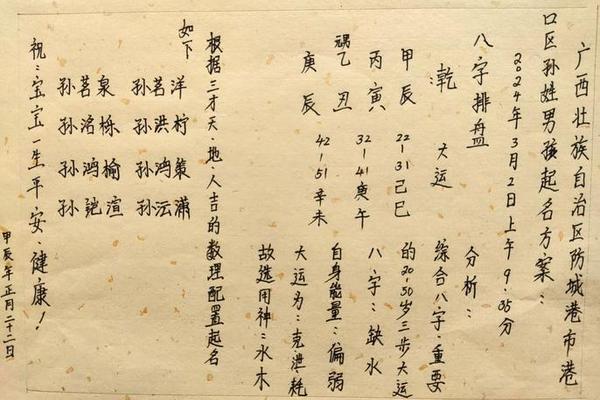 广西壮族自治区防城港市港
口区孙姓男孩起名方案：
2024年3月2日上午9.35分
八字排盘
乾 大运
甲辰 22-31己巳
丙寅 32-41庚午
乙丑
庚辰 42-51辛未
分析：
综合八字·重要
的20-50岁三步大运
八字：缺水
自身能量：偏弱
大运为：克泄耗
故选用神：水木
根据三才天·地·人吉的数理配置起名
如下
孙茗洋
孙洪柠
孙鸿策
孙沄潇
孙茗泉
孙洺栎
孙鸿榆
孙 渲
祝：宝宝一生平安·健康！
甲辰年正月二十二日